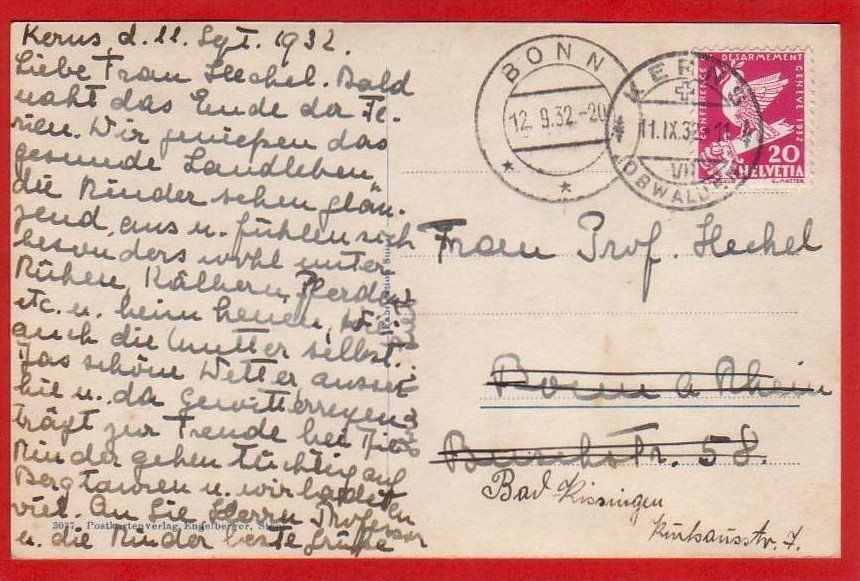 Kerns, d. 11. Sept. 1932.
Liebe Frau Heckel. Bald
naht das Ende der Fe-
rien. Wir genießen das
gesunde Landleben
die Kinder sehen glän-
zend aus u. fühlen sich
besonders wohl unter
Kühen, Kälbern, Pferden
etc. u. beim heuen, wie
auch die Mutter selbst.
Das schöne Wetter ausser
hie u. da Gewitterregen
trägt zur Freude bei. Die
Kinder gehen tüchtig auf
Bergtouren u. wir baden
viel. An Sie Herrn Professor
u. die Kinder beste Grüße
3037 Postkartenverlag, Engelberger,
BONN
12.9.32.-20
KERNS
11.IX.32-11
VII
(OBWALDEN)
CONFERENCE DU DESARMEMENT GENEVE 1932
20
HELVETIA
Frau Prof. Heckel
Bonn a Rhein
58.
Bad Kissingen
Kurhausstr. 7.